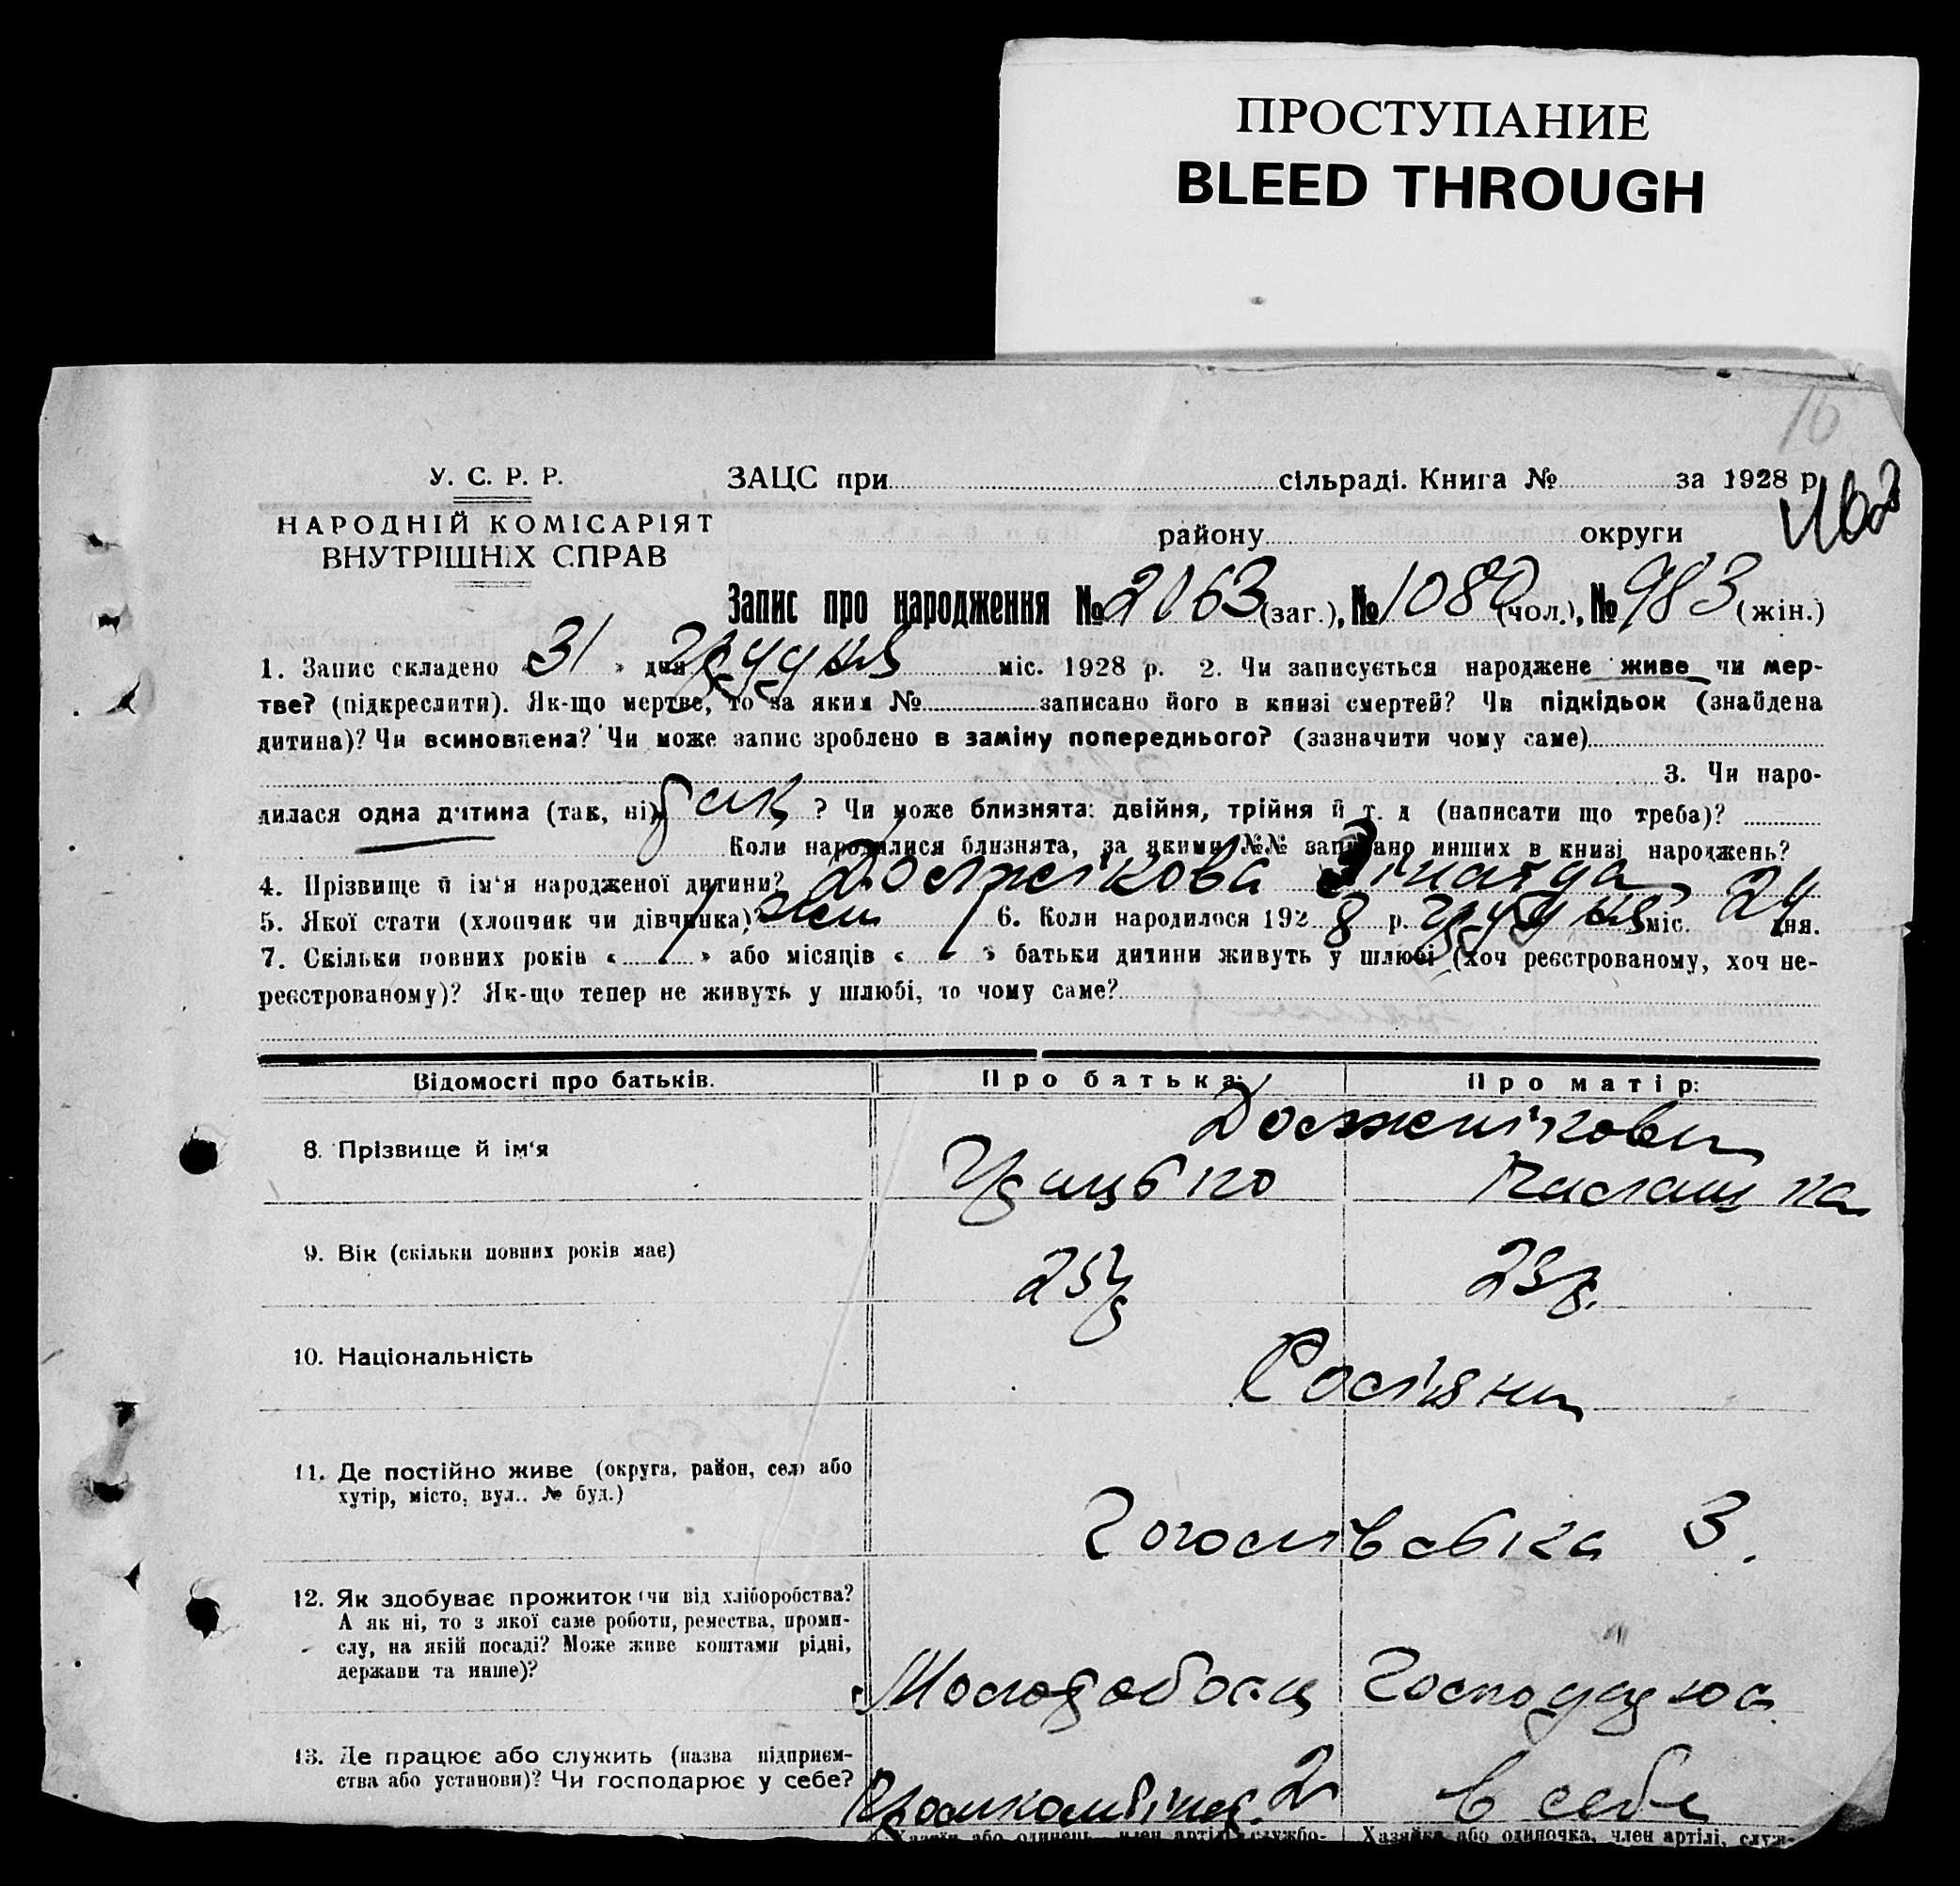 ПРОСТУПАНИЕ
BLEED THROUGH
16
У. С. Р. Р.
НАРОДНІЙ КОМІСАРІЯТ
ВНУТРІШНІХ СПРАВ
ЗАЦС при сільраді. Книга № за 1928 р.
району округи
Запис про народження № 2063 (заг.), № 1080 (чол.), № 983 (жін.)
1. Запис складено « 31 » дня грудня міс. 1928 р. 2. Чи записується народжене живе чи мер-
тве? (підкреслити). Як-що мертве, то за яким № записано його в книзі смертей? Чи підкідьок (знайдена
дитина)? Чи всиновлена? Чи може запис зроблено в заміну попереднього? (зазначити чому саме)
3. Чи наро-
дилася одна дитина (так, ні) так ? Чи може близнята: двійня, трійня й т. д (написати що треба)?
Коли народилися близнята, за якими №№ записано инших в книзі народжень?
4. Прізвище й ім'я народженої дитини? Должнікова Зінаїда
5. Якої стати (хлопчик чи дівчинка)? жін 6. Коли народилося 1928 р. грудня міс. 24 дня.
7. Скільки повних років « » або місяців « » батьки дитини живуть у шлюбі (хоч реєстрованому, хоч не-
реєстрованому)? Як-що тепер не живуть у шлюбі, то чому саме?
Відомості про батьків. Про батька: Про матір:
8. Прізвище й ім'я
Должнікови
Грицько Палашка
9. Вік (скільки повних років має)
25р 23р.
10. Національність
Росіяни
11. Де постійно живе (округа, район, село або
хутір, місто, вул., № буд.)
Гоголівська 3.
12. Як здобуває прожиток (чи від хліборобства?
А як ні, то з якої саме роботи, ремества, проми-
слу, на якій посаді? Може живе коштами рідні,
держави та инше)?
Господарює
13. Де працює або служить (назва підприєм-
ства або установи)? Чи господарює у себе?
2 в себе
Хазяїн або одинець, член артілі, службо- Хазяйка або одиночка, член артілі, служ-